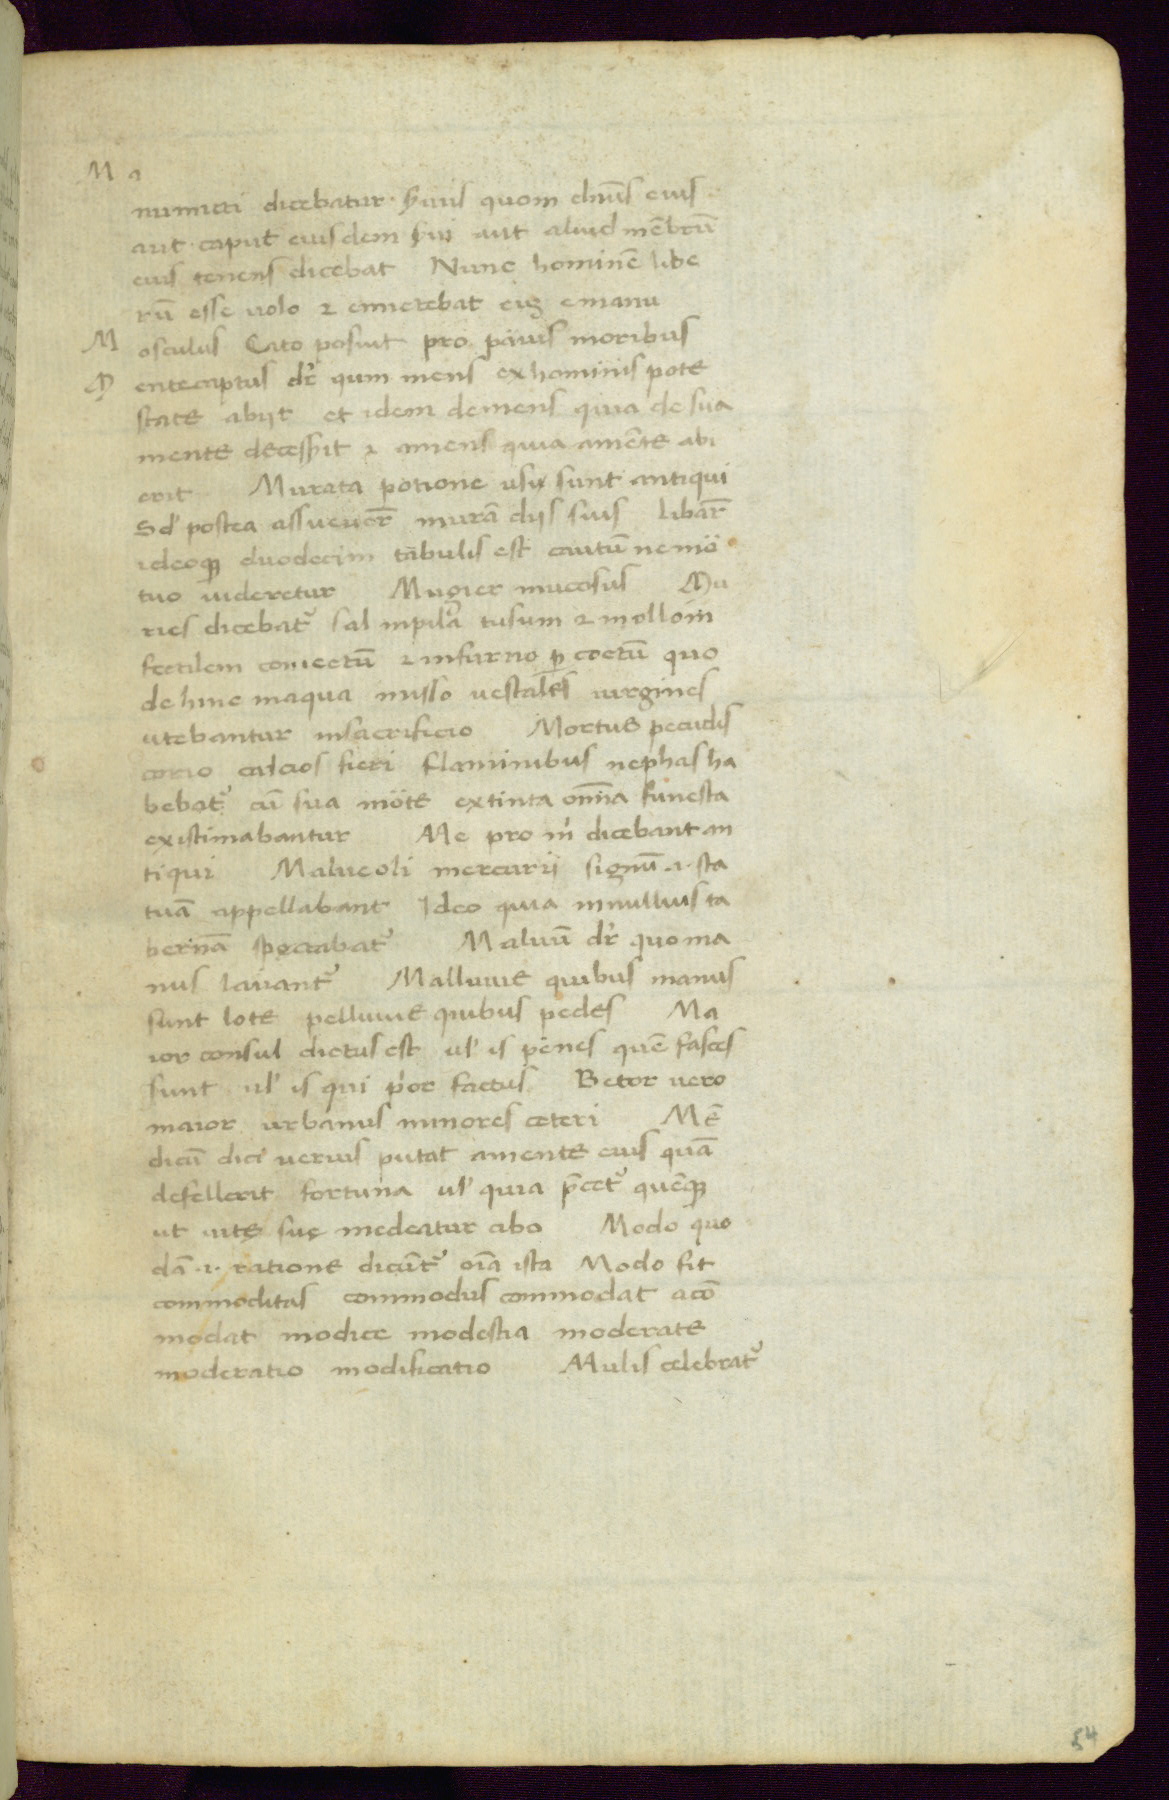 M a
numicti dicebatur. ẜuus quom dn̄s eius
aut. caput eiusdem ẜui aut aliud mēbrū
eius tenens dicebat Nunc hominē libe
rū esse uolo ⁊ emictebat eū emanu
M osculus Cato posuit pro paruis moribus
M entecaptus dr̄ qum mens ex hominis pote
state abijt et idem demens quia de sua
mente decessit ⁊ amens quia amente abi
erit Murata potione usi sunt antiqui
Sd' postea assueuer̄ murā dijs suis libar̄
ideoqꝫ duodecim tabulis est cautū ne mō
tuo uideretur Muger mucosus Mu
ries dicebat᷑ sal inpila tusum ⁊ in ollom
fictilem coniectū ⁊ infurno ꝑ coctū quo
dehinc inaqua misso uestales uirgines
utebantur insacrificio Mortue pecudis
corio calcios fieri flaminibus nephas ha
bebat᷑ cū sua mōte extinta omīa funesta
existimabantur Me pro m̍ dicebant an
tiqui Maliuoli mercurii signū .i. sta
tuā appellabant Ideo quia innullius ta
bernā spectabat᷑ Maluū dr̄ quo ma
nus lauant᷑ Malluuie quibus manus
sunt lote pelluuie quibus pedes Ma
ior consul dictus est ul' is penes quē fasces
sunt ul' is qui p̍or factus Pretor uero
maior urbanus minores ceteri Mē
dicū dici uerius putat amente eius quā
defellerit fortuna ul' quia p̄cet᷑ quēqꝫ
ut uite sue medeatur cibo Modo quo
dā .i. ratione dicūt᷑ oīa ista Modo fit
commoditas commodus commodat acō
modat modice modestia moderate
moderatio modificatio Mulis celebrat᷑
54